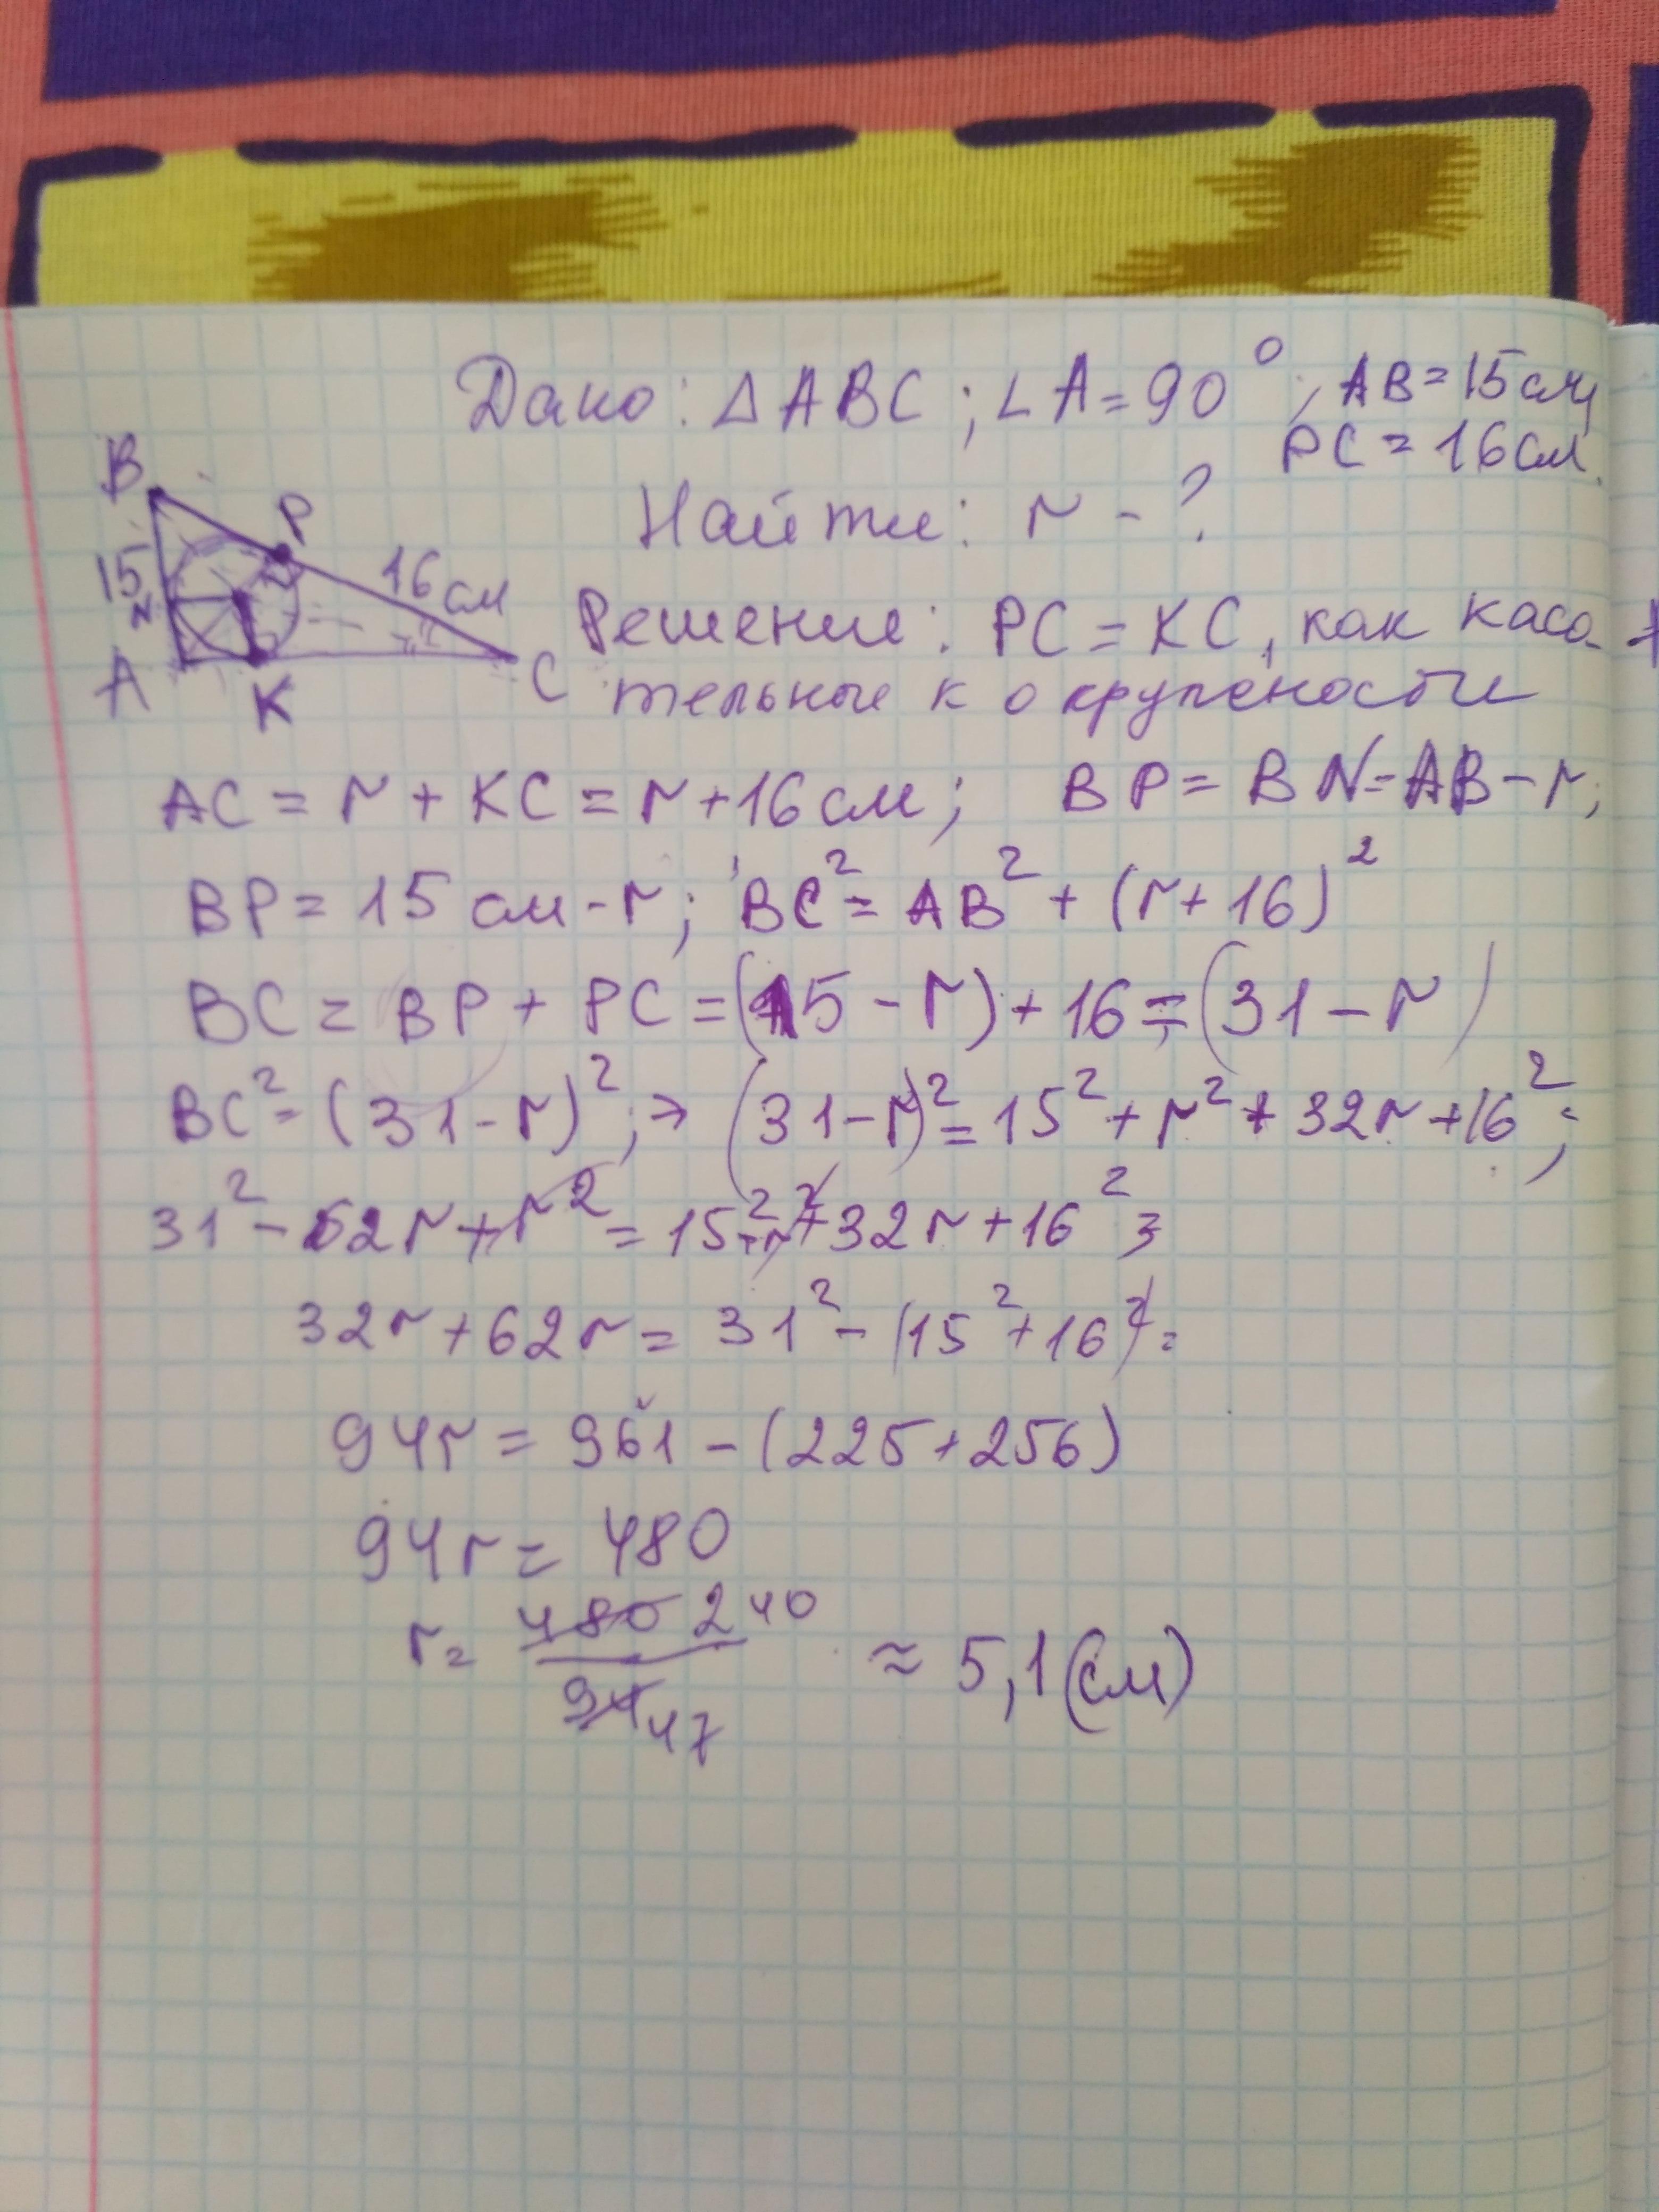 Дано: △ABC; ∠A=90°, AB=15см,
PC=16см.
Найти: r-?
B
P
15
N
16см
A
K
C
Решение: PC=KC, как каса-
тельные к окружности
AC=r+KC=r+16см; BP=BN=AB-r;
BP=15см-r; BC²=AB²+(r+16)²
BC=BP+PC=(15-r)+16=(31-r)
BC²=(31-r)²;→(31-r)²=15²+r²+32r+16²;
31²-62r+r²=15²+r²+32r+16²;
32r+62r=31²-(15²+16²)=
94r=961-(225+256)
94r=480
r=480 240/94 47≈5,1(см)